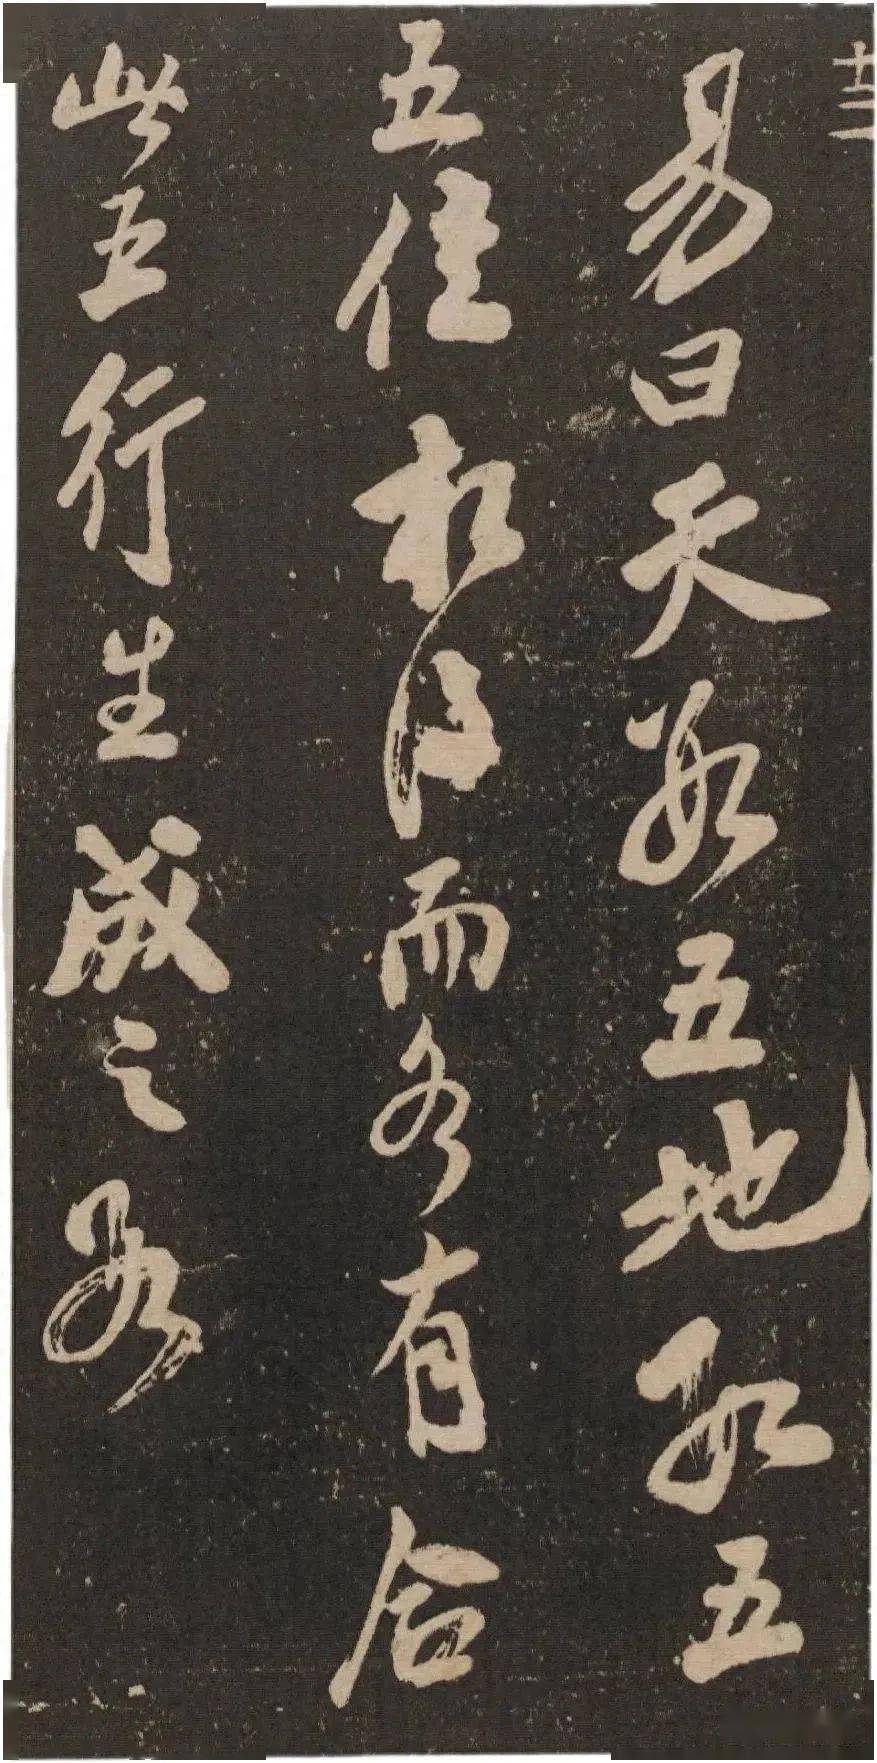 十二
易曰天數五地數五
五位相得而各有合
此五行生成之數